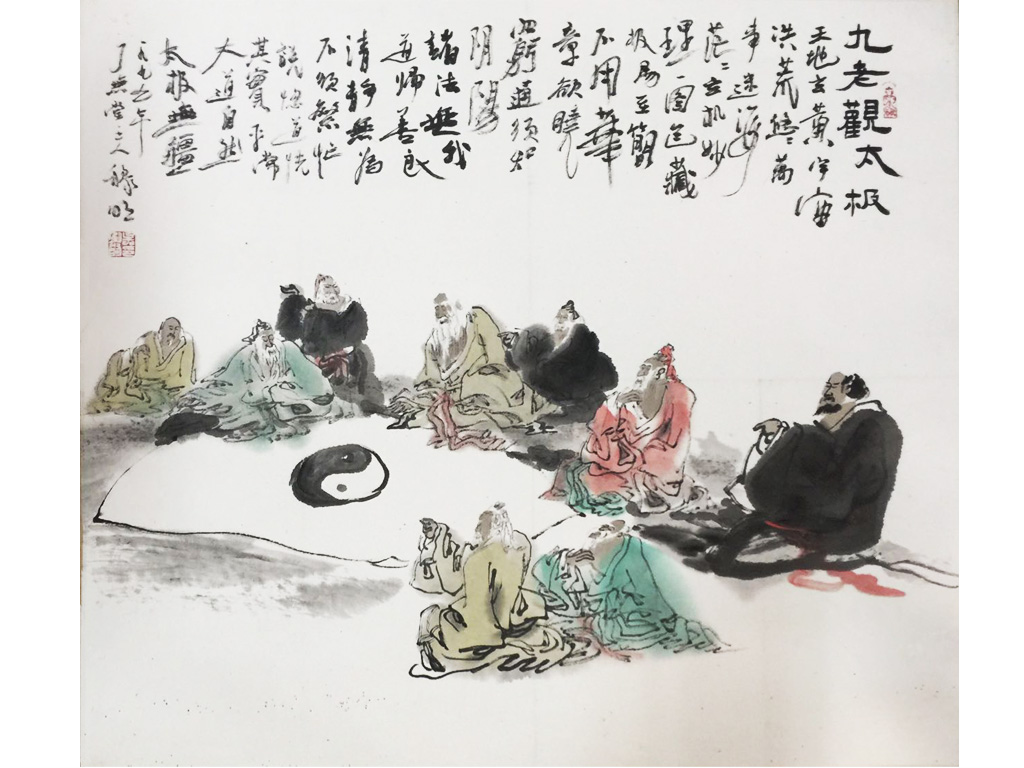 九老觀太极
天地玄黄宇宙
洪荒萬
事迷海
茫〻玄机妙
理一圖包藏
极易至簡
不用華
章欲曉
窮通须知
阴陽
諸法無我
道歸善良
清静無為
不须繁忙
道恍
其實平常
大道自然
太极無疆
一九九五年
了無堂主人